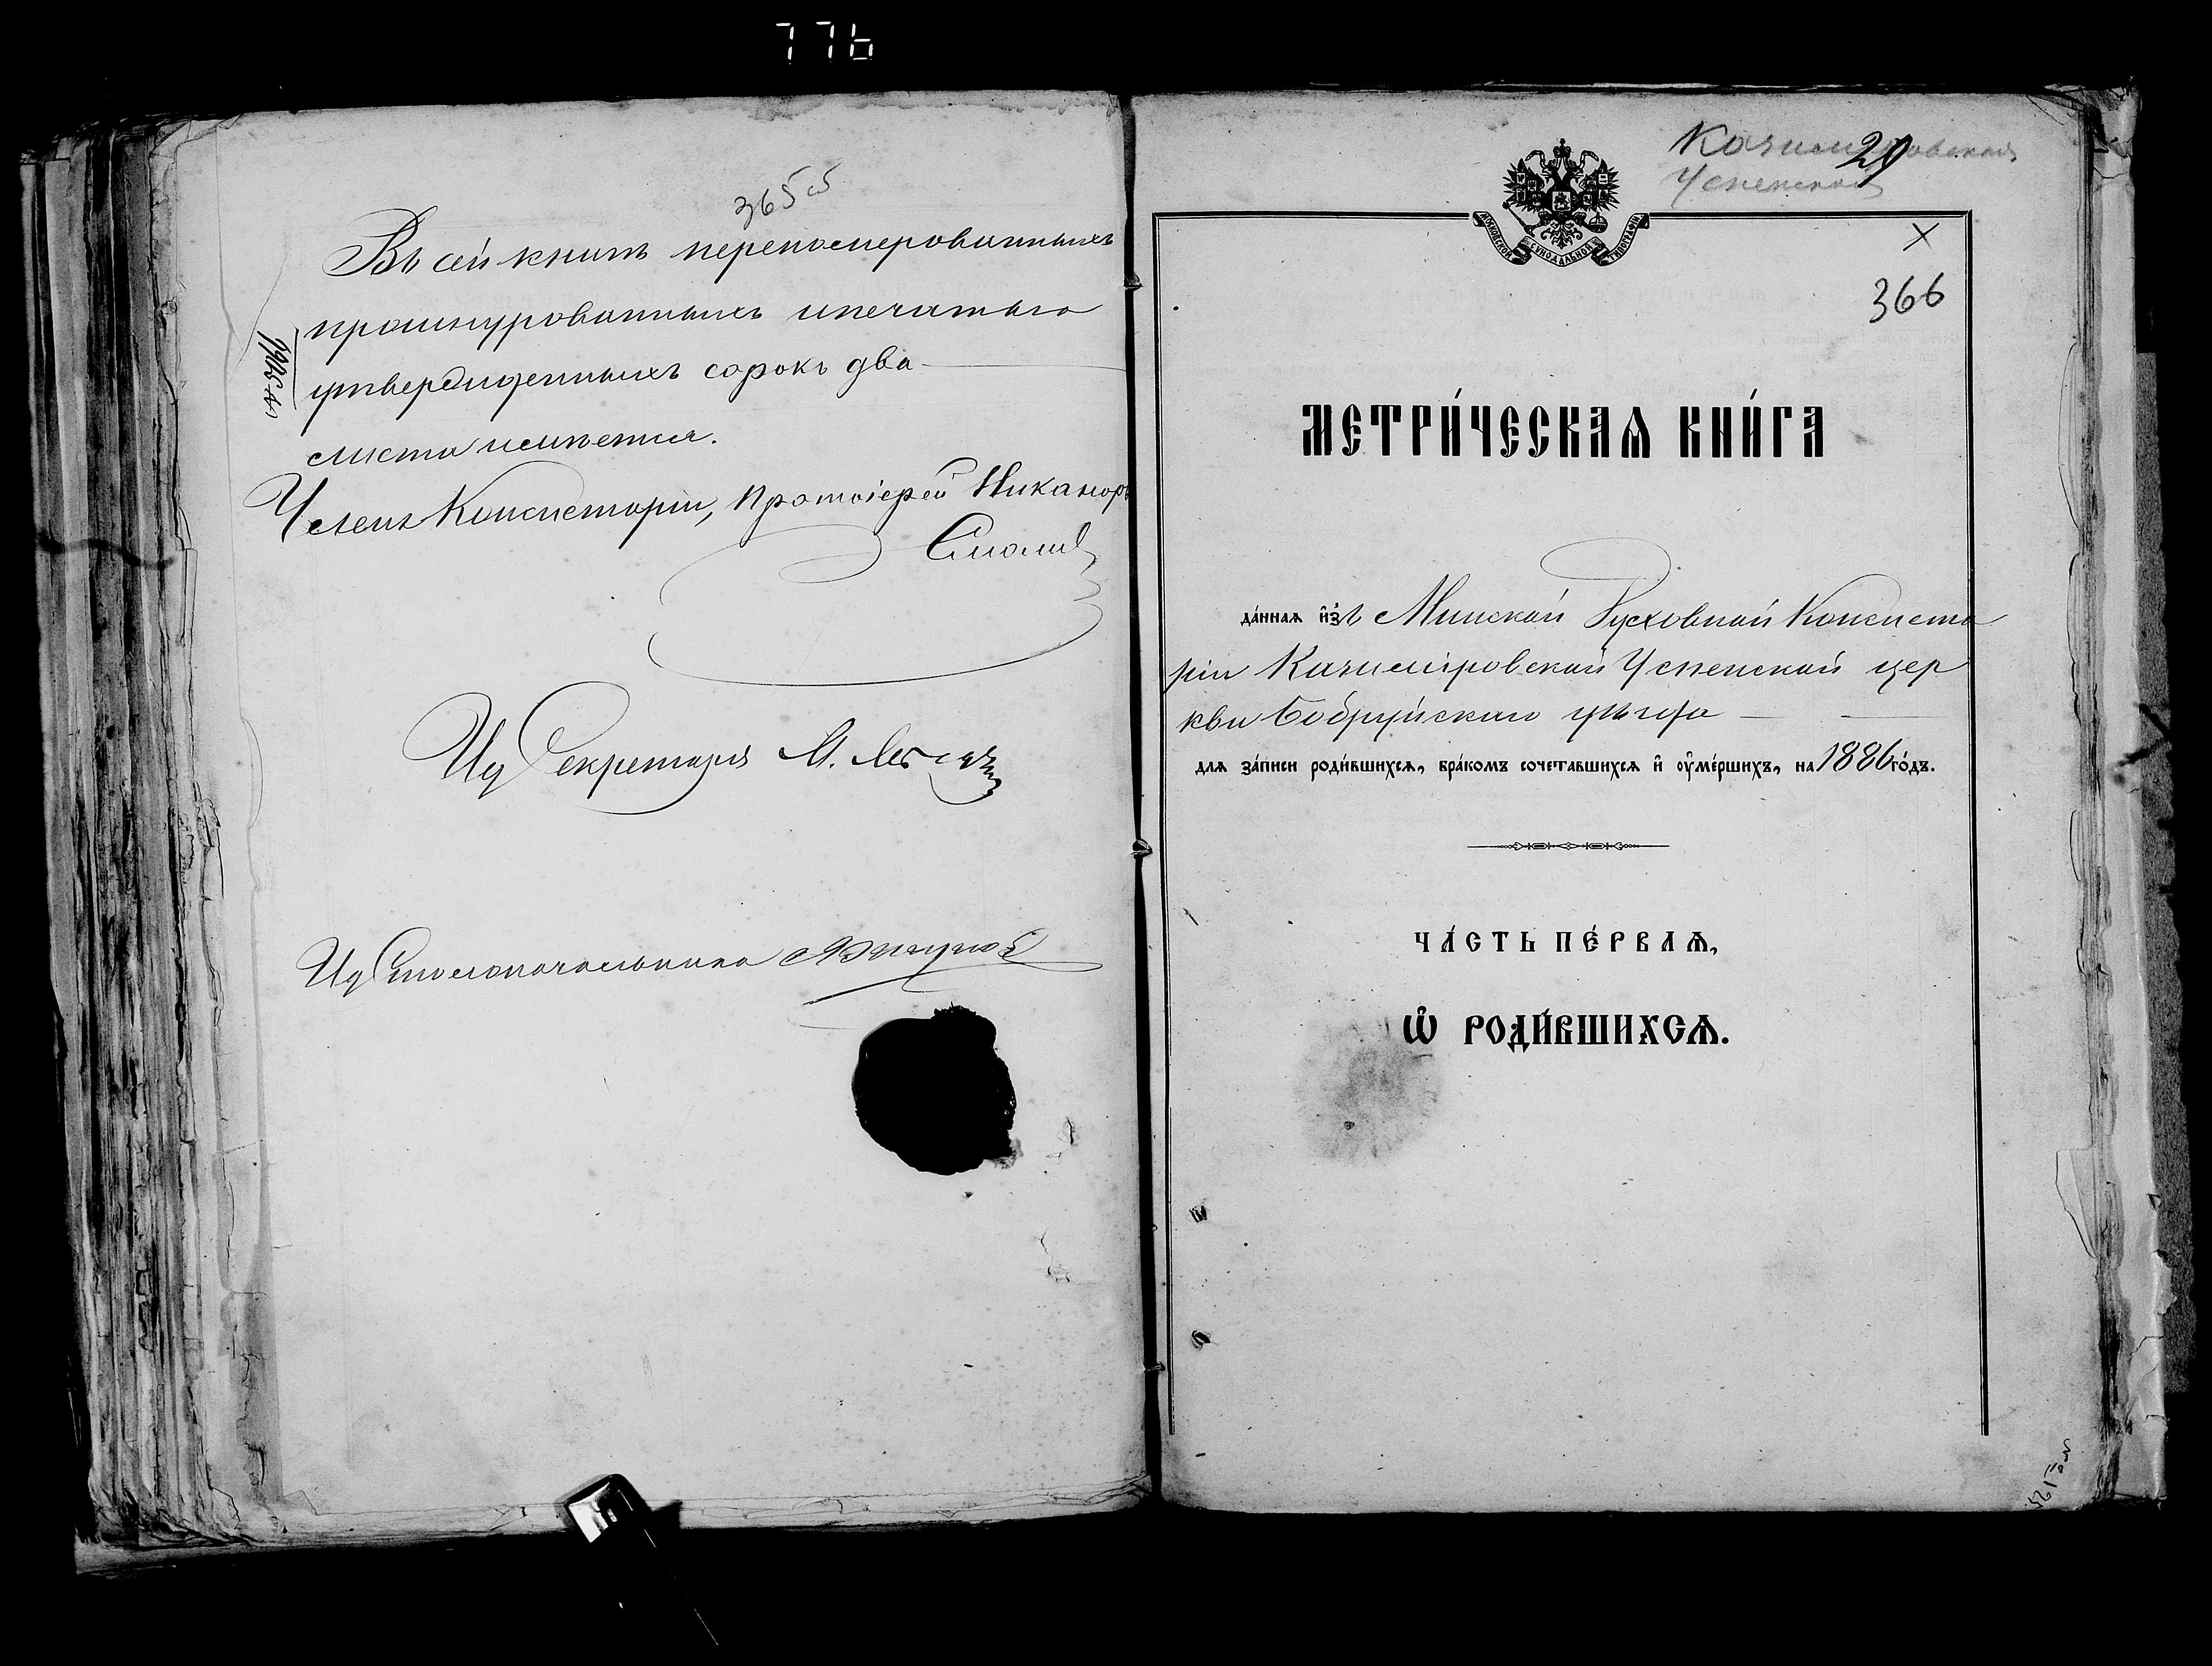 776
365 об
Въ сей книгѣ перенумерованныхъ
прошнурованныхъ и печатью
утвержденныхъ сорокъ два
листа имѣется.
Членъ Консисторіи, Протоіерей Никаноръ
Смолич
Ид Секретаря М.
Ид Столоначальника
Казимировская
29
Успенская
МОСКОВСКОЙ СѴНОДАЛЬНОЙ ТИПОГРАФІИ
X
366
МЕТРИ́ЧЕСКАѦ КНИ́ГА
да́ннаѧ и҆зъ Минской Духовной Консисто
ріи Казимировской Успенской цер
кви Бобруйскаго уѣзда
длѧ за́писи роди́вшихсѧ, бра́комъ сочета́вшихсѧ и҆ ᲂу҆ме́ршихъ, на 1886 го́дъ.
ЧА́СТЬ ПЕ́РВАѦ,
Ѡ҆ РОДИ́ВШИХСѦ.